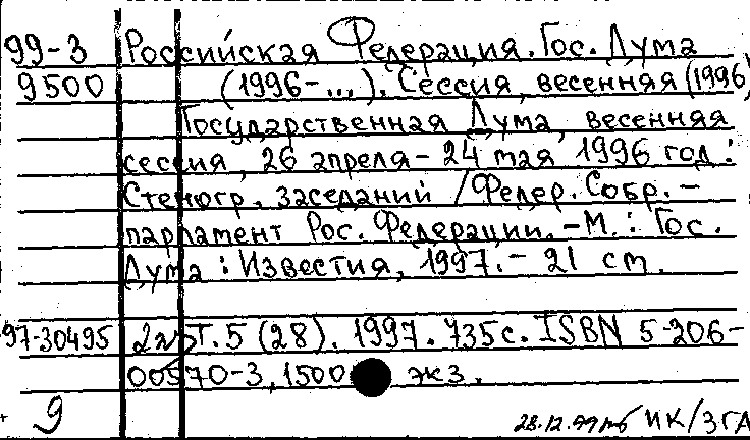 99-3 Российская Федерация. Гос. Дума
9500 (1996-...). Сессия, весенняя (1996)
Государственная Дума, весенняя
сессия, 26 апреля - 24 мая 1996 год :
Стеногр. заседаний / Федер. Собр. -
парламент Рос. Федерации. - М. : Гос.
Дума : Известия, 1997. - 21 см.
97-30495 Т. 5 (28). 1997. 735с. ISBN 5-206-
00570-3, 1500 экз.
9
28.12.99 ИК/ЗГД